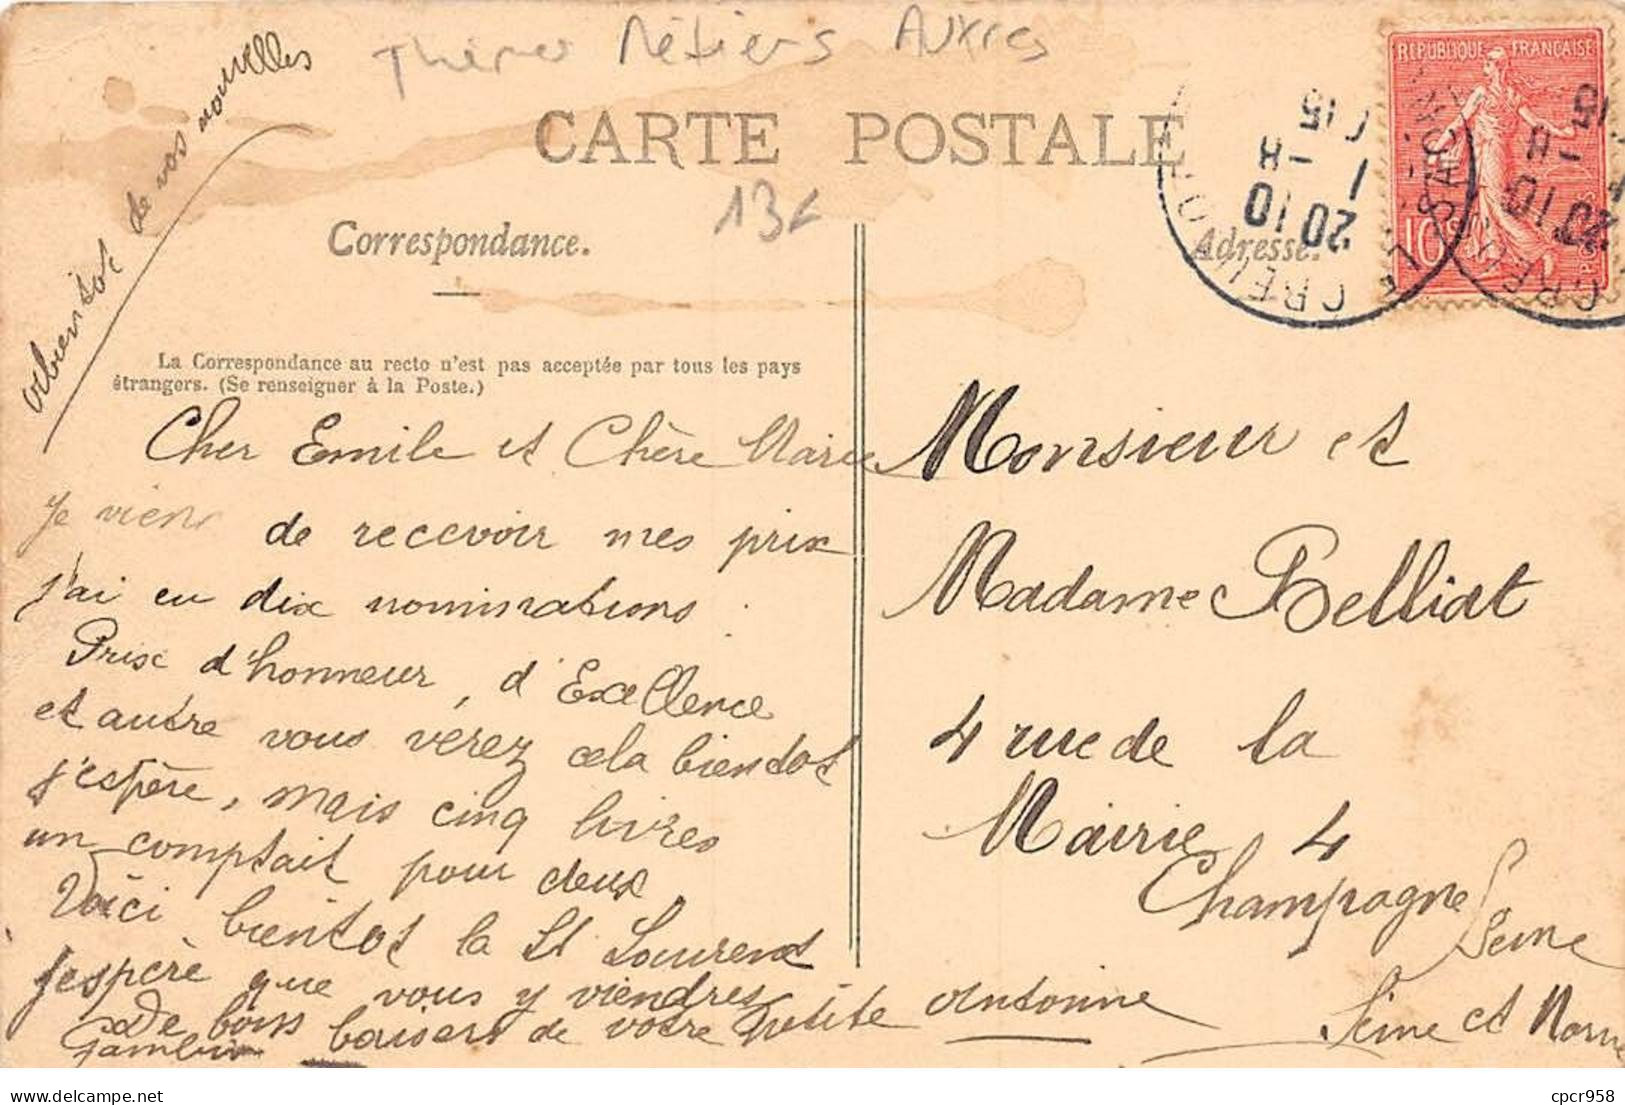 Métiers Autres
à bientôt de vos nouvelles
CARTE POSTALE
13€
Correspondance.
Adresse.
REPUBLIQUE FRANÇAISE
10
POSTES
20 10
1 - 8
15
20 10
- 8
15
La Correspondance au recto n'est pas acceptée par tous les pays
étrangers. (Se renseigner à la Poste.)
Cher Emile et Chère Marie
Je viens de recevoir mes prix
j'ai eu dix nominations.
Prix d'honneur, d'Exellence
et autre vous vérez cela bientot
j'espère, mais cinq livres
un comptait pour deux
Voici bientot la St Laurent
J'espère que vous y viendrez
De bons baisers de votre petite Antonine
Monsieur et
Madame Belliat
4 rue de la
Mairie 4
Champagne
Seine
Seine et Marne
cpcr958